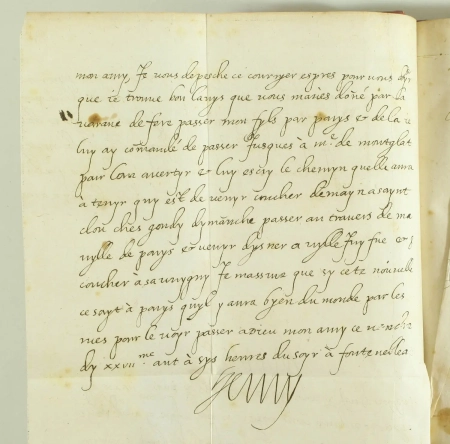 mon amy, Je vous depesche ce courryer espres pour vous dyre
que je trouve bon l'avys que vous mavies doné par la
varane de fere passer mon fyls par parys et de la je
luy ay comandé de passer Jusques à mr. de montglat
pour lan avertyr et luy escry le chemyn quelle aura
à tenyr quy est de venyr coucher demayn a saynt
clou ches gondy dymanche passer au travers de ma
vylle de parys et venyr dysner a vylle Juyfue et
coucher à savygny Je massure que sy cete nouvelle
ce sayt à parys quyl y aura byen du monde par les
rues pour le voyr passer adieu mon amy ce vandredy
xxvii me aut à sys heures du soyr à fontenebleau
Henry